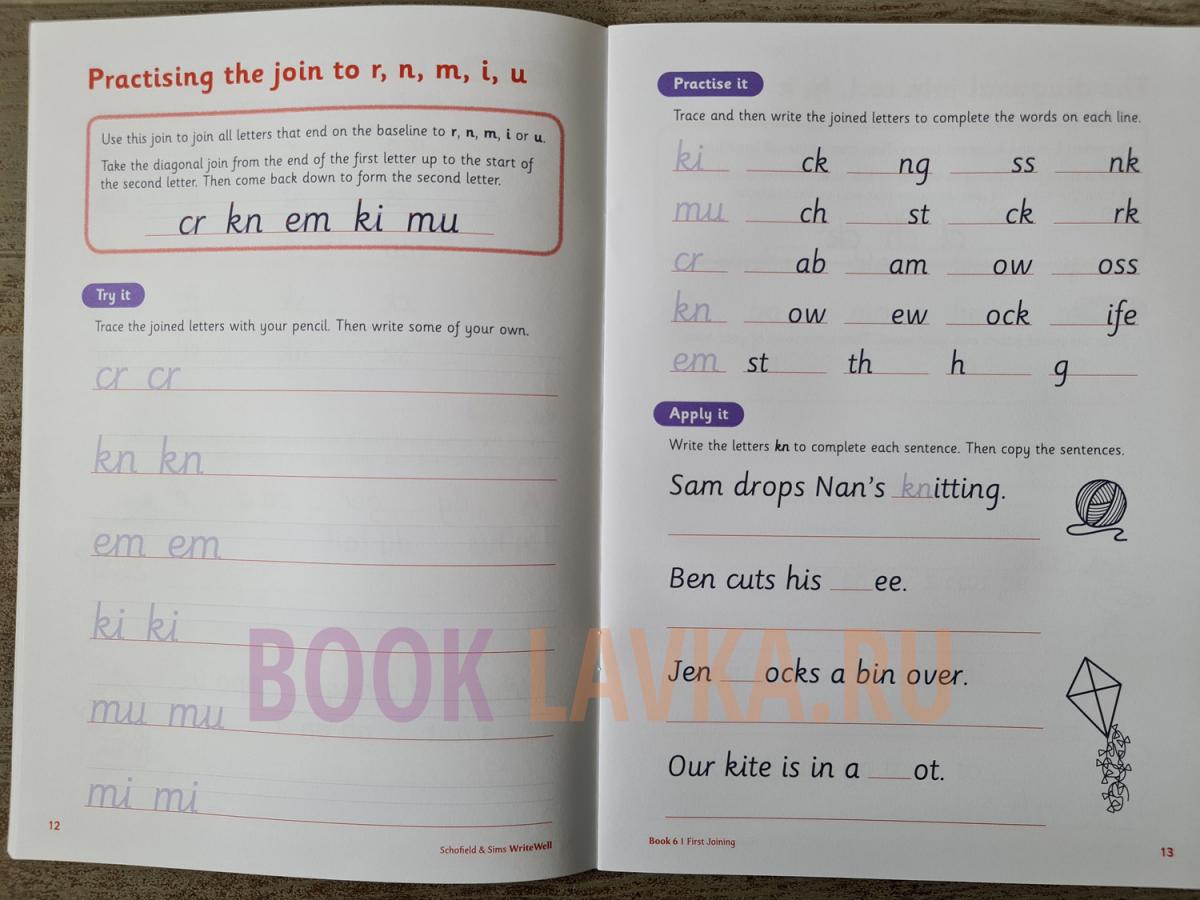 Practising the join to r, n, m, i, u
Use this join to join all letters that end on the baseline to r, n, m, i or u.
Take the diagonal join from the end of the first letter up to the start of
the second letter. Then come back down to form the second letter.
cr kn em ki mu
Try it
Trace the joined letters with your pencil. Then write some of your own.
cr cr
kn kn
em em
ki ki
mu mu
mi mi
12
Schofield & Sims WriteWell
Practise it
Trace and then write the joined letters to complete the words on each line.
ki ck ng ss nk
mu ch st ck rk
cr ab am ow oss
kn ow ew ock ife
em st th h g
Apply it
Write the letters kn to complete each sentence. Then copy the sentences.
Sam drops Nan's knitting.
Ben cuts his ___ee.
Jen ___ocks a bin over.
Our kite is in a ___ot.
Book 6 | First Joining
13
BOOK LAVKA.RU